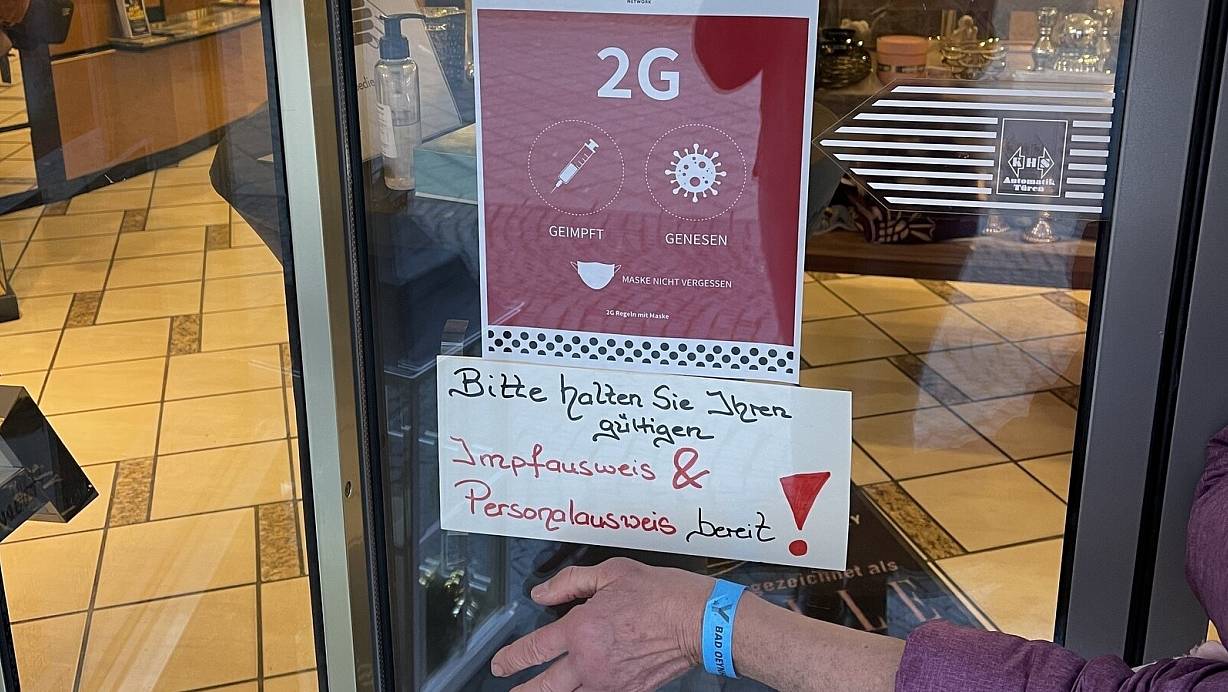 NETWORK
2G
GEIMPFT
GENESEN
MASKE NICHT VERGESSEN
2G Regeln mit Maske
KHS
Automatik
Türen
Bitte halten Sie Ihren
gültigen
Impfausweis &
Personalausweis bereit !
gezeichnet als
BAD OEYN